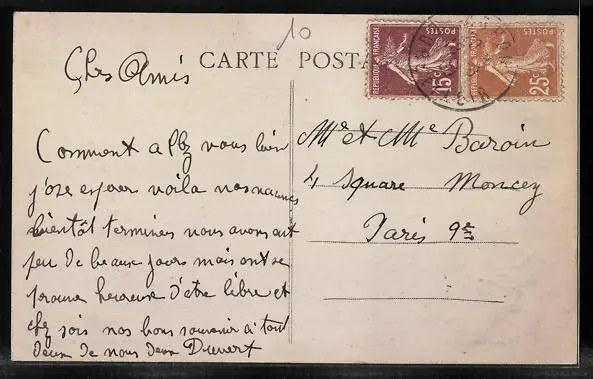 10
CARTE POSTA
REPUBLIQUE FRANÇAISE POSTES 15c
REPUBLIQUE FRANÇAISE POSTES 25c
Chers Amis
Comment allez vous bien
j'ose esperer voila nos vacances
bientôt terminés nous avons eut
peu de beaux jours mais ont se
trouve heureuse d'être libre et
chez sois nos bons souvenir à tout
deux de nous deux
Mr et Me Baroin
4 Square Moncey
Paris 9e